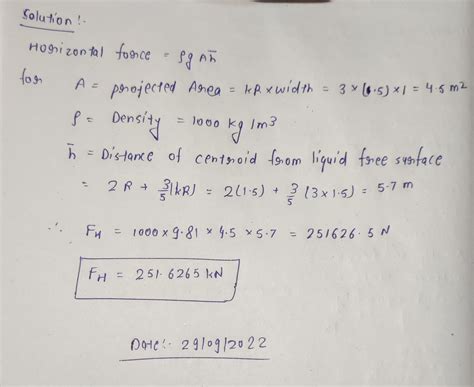 Solution :-
Horizontal force = ρg A h̄
for A = projected Area = kR × width = 3 × (1.5) × 1 = 4.5 m²
ρ = Density = 1000 kg/m³
h̄ = Distance of centroid from liquid free surface
= 2R + 3/5 (kR) = 2(1.5) + 3/5 (3 × 1.5) = 5.7 m
∴ F_H = 1000 × 9.81 × 4.5 × 5.7 = 251626.5 N
F_H = 251.6265 kN
Date :- 29/09/2022